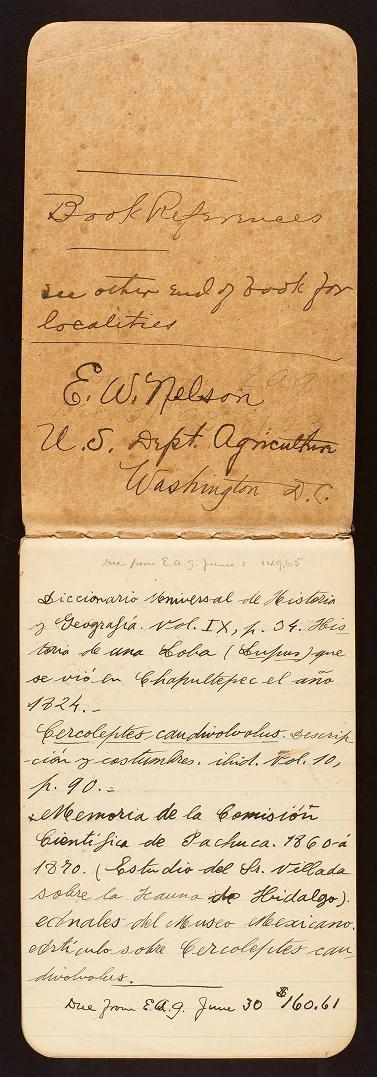 Book References
see other end of book for
localities
E. W. Nelson
E. A. G.
U.S. Dept. Agriculture
Washington D.C.
Due from E. A. G. June 1 149.65
Diccionario Universal de Historia
y Geografía. Vol. IX, p. 34. His-
toria de una Loba (Lupus) que
se vió en Chapultepec el año
1824.-
Cercoleptes caudivolvolus. Descrip-
ción y costumbres. ibid. Vol. 10,
p. 90.-
Memoria de la Comisión
Científica de Pachuca. 1860 á
1870. (Estudio del Sr. Villada
sobre la Fauna de Hidalgo).
Anales del Museo Mexicano.
Artículo sobre Cercoleptes cau-
divolvolus.
Due from E. A. G. June 30 $160.61